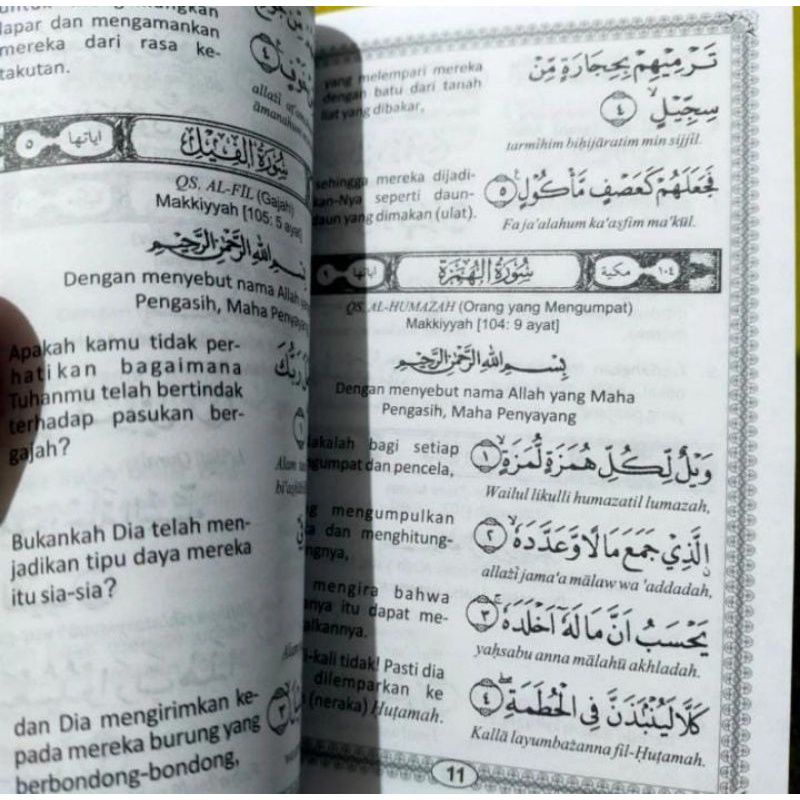 lapar dan mengamankan
mereka dari rasa ke-
takutan.
اياتها ٥
سُوْرَةُ الْفِيْلِ
QS, AL-FĪL (Gajah)
Makkiyyah [105: 5 ayat]
بِسْمِ اللهِ الرَّحْمٰنِ الرَّحِيْمِ
Dengan menyebut nama Allah yang
Pengasih, Maha Penyayang
Apakah kamu tidak per-
hatikan bagaimana
Tuhanmu telah bertindak
terhadap pasukan ber-
gajah?
Bukankah Dia telah men-
jadikan tipu daya mereka
itu sia-sia?
dan Dia mengirimkan ke-
pada mereka burung yang
berbondong-bondong,
yang melempari mereka
dengan batu dari tanah
liat yang dibakar,
تَرْمِيْهِمْ بِحِجَارَةٍ مِّنْ
سِجِّيْلٍۙ ٤
tarmīhim biḥijāratim min sijjīl.
sehingga mereka dijadi-
kan-Nya seperti daun-
daun yang dimakan (ulat).
فَجَعَلَهُمْ كَعَصْفٍ مَّأْكُوْلٍࣖ ٥
Fa ja'alahum ka'aṣfim ma'kūl.
١٠٤ مكية سُوْرَةُ الْهُمَزَةِ اياتها ٩
QS, AL-HUMAZAH (Orang yang Mengumpat)
Makkiyyah [104: 9 ayat]
بِسْمِ اللهِ الرَّحْمٰنِ الرَّحِيْمِ
Dengan menyebut nama Allah yang Maha
Pengasih, Maha Penyayang
bagi setiap
dan pencela,
وَيْلٌ لِّكُلِّ هُمَزَةٍ لُّمَزَةٍۙ ١
Wailul likulli humazatil lumazah,
mengumpulkan
dan menghitung-
اۨلَّذِيْ جَمَعَ مَالًا وَّعَدَّدَهٗۙ ٢
allażī jama'a mālaw wa 'addadah,
mengira bahwa
itu dapat me-
يَحْسَبُ اَنَّ مَالَهٗٓ اَخْلَدَهٗۚ ٣
yaḥsabu anna mālahū akhladah.
-kali tidak! Pasti dia
dilemparkan ke
(neraka) Ḥuṭamah.
كَلَّا لَيُنْۢبَذَنَّ فِى الْحُطَمَةِۖ ٤
Kallā layumbażanna fil-Ḥuṭamah.
11